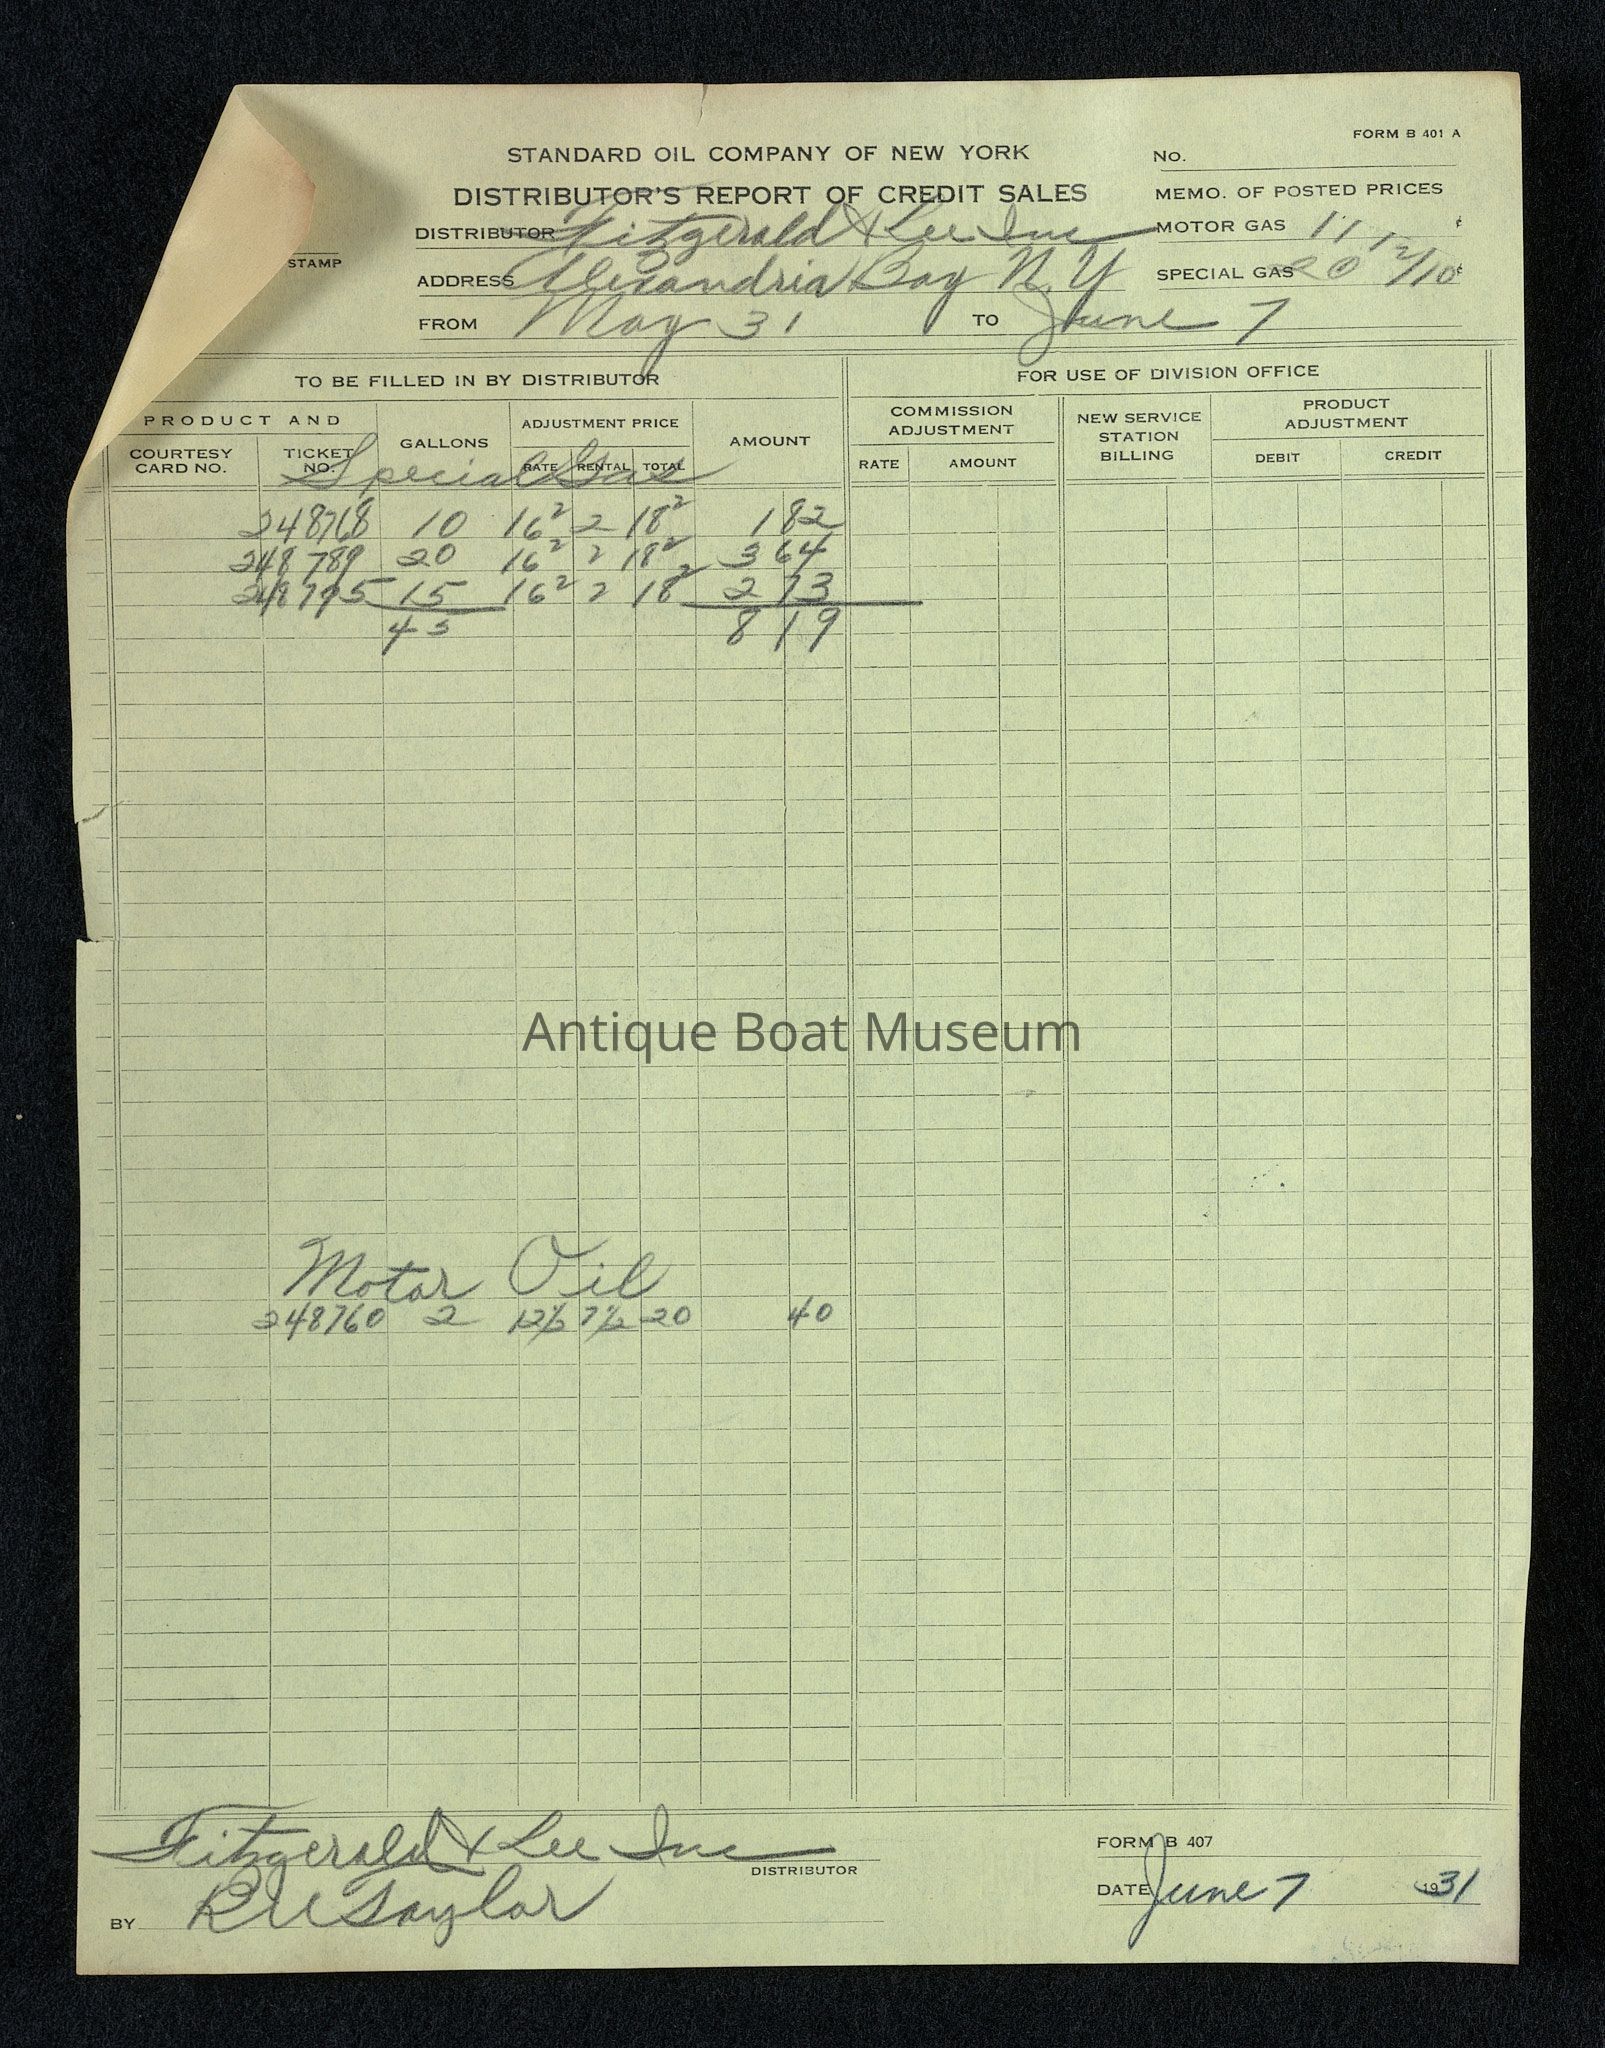 FORM B 401 A
STANDARD OIL COMPANY OF NEW YORK
NO.
DISTRIBUTOR'S REPORT OF CREDIT SALES
MEMO. OF POSTED PRICES
DISTRIBUTOR Fitzgerald & Lee Inc
MOTOR GAS 11 ¢
STAMP
ADDRESS Alexandria Bay N.Y
SPECIAL GAS 20 2/10 ¢
FROM May 31 TO June 7
TO BE FILLED IN BY DISTRIBUTOR
FOR USE OF DIVISION OFFICE
PRODUCT AND
COURTESY CARD NO.
TICKET NO.
GALLONS
ADJUSTMENT PRICE
RATE RENTAL TOTAL
AMOUNT
COMMISSION ADJUSTMENT
RATE AMOUNT
NEW SERVICE STATION BILLING
PRODUCT ADJUSTMENT
DEBIT CREDIT
Special Gas
248768 10 16² 2 18² 1 82
248789 20 16² 2 18² 3 64
248795 15 16² 2 18² 2 73
45 8 19
Antique Boat Museum
Motor Oil
248760 2 12½ 7½ 20 40
Fitzgerald & Lee Inc
DISTRIBUTOR
FORM B 407
BY Taylor
DATE June 7 1931